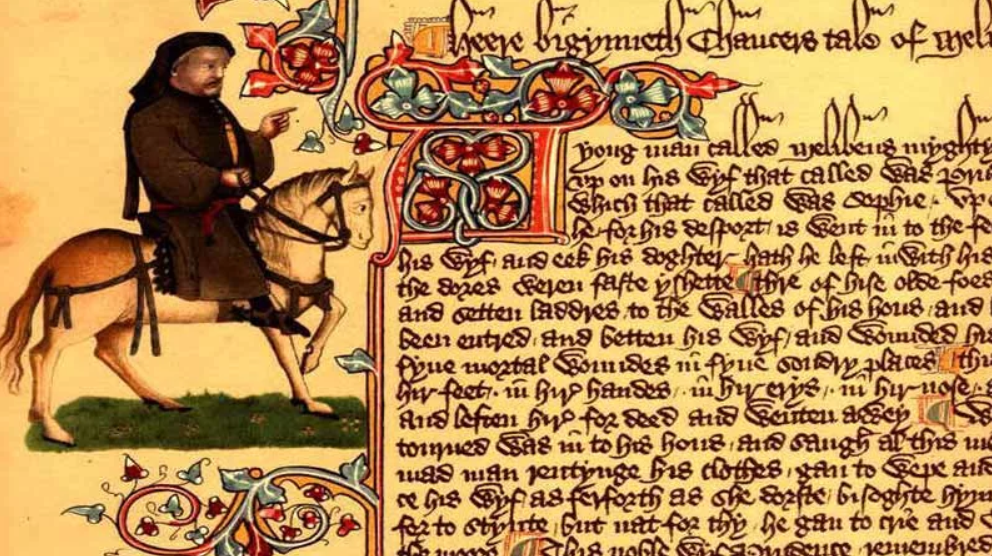 Heere bigynneth Chaucers tale of Meli
A
yong man called Melibeus myghty
vp on his wyf that called was Pru
which that called was Sophie. Vpo
he for his desport is went in to the fe
his wyf and eek his doghter hath he left inwith his
the dores weren faste yshette thre of hise olde foes
and setten laddres to the walles of his hous and
been entred and betten his wyf and wounded his
fyue mortal woundes in fyue sondry places thi
hir feet. in hir handes. in hir erys. in hir nose.
and leften hir for deed and wenten awey W
tourned was in to his hous and saugh al this me
mad man rentynge his clothes gan to wepe and
ce his wyf as ferforth as she dorste bisoghte hym
for to stynte but nat for thy he gan to crie and
the moore This noble wyf Prudence remembres